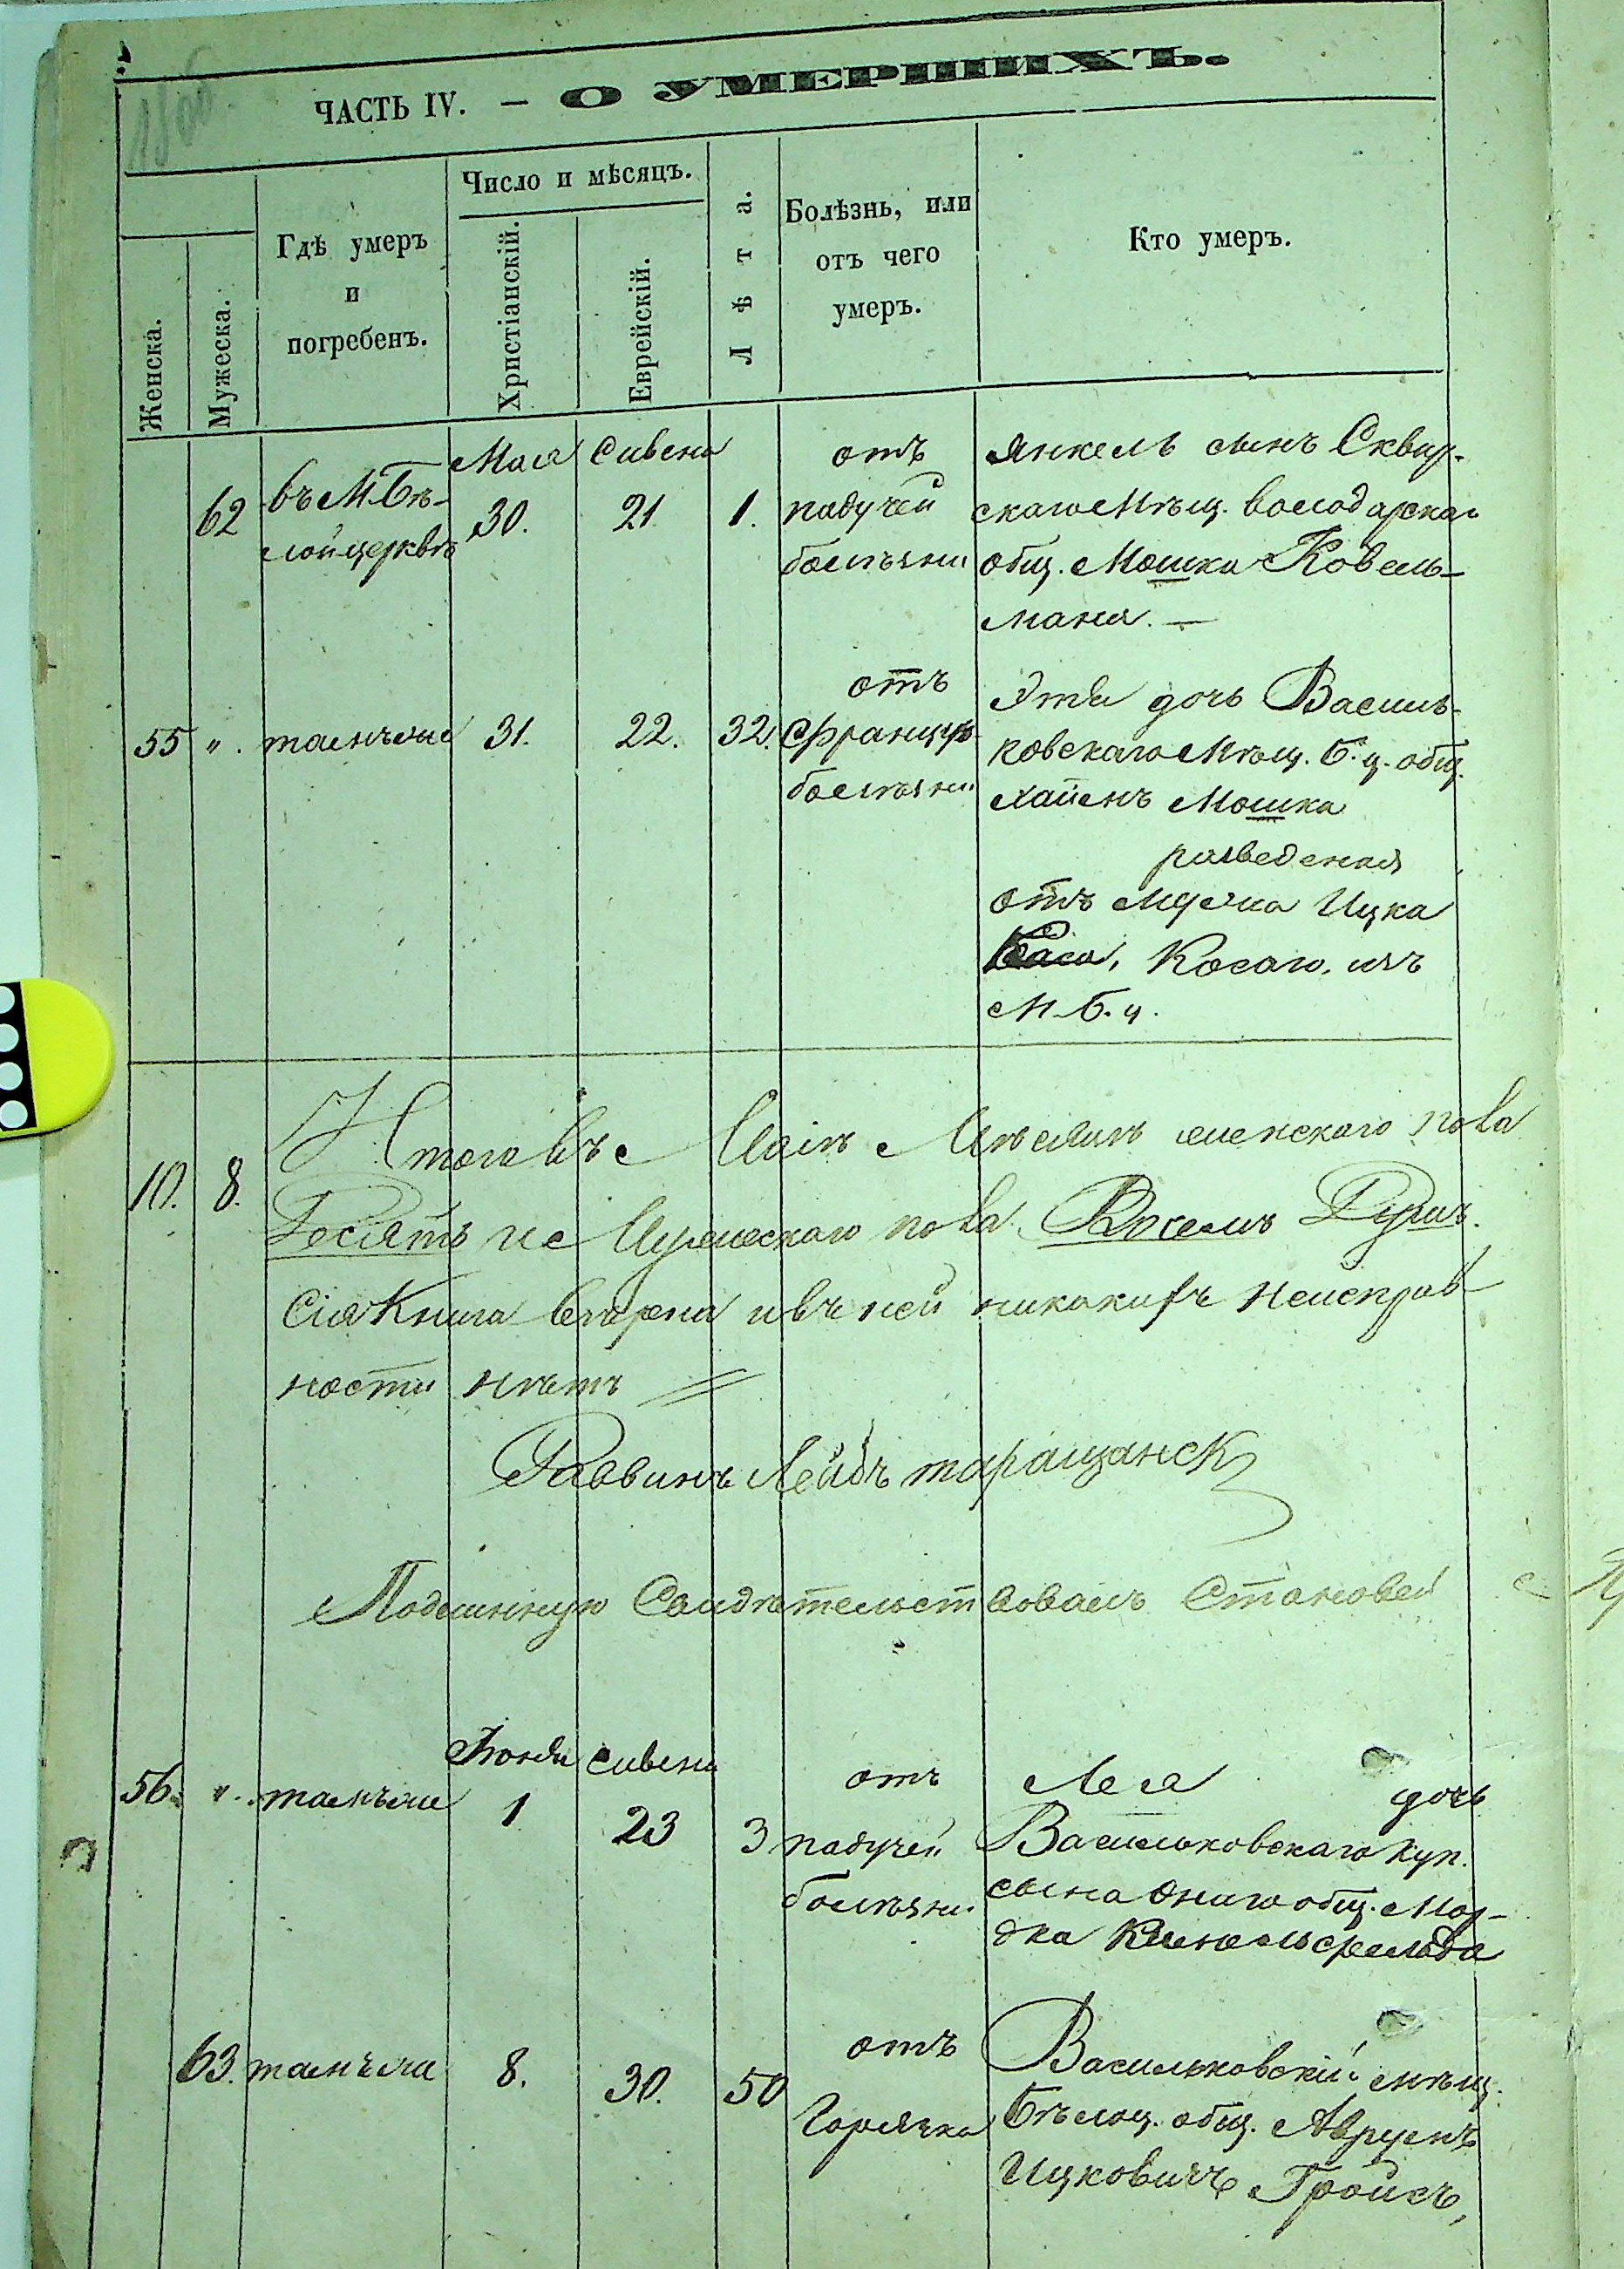 ЧАСТЬ IV. — О УМЕРШИХЪ.
Женска.
Мужеска.
Гдѣ умеръ
и
погребенъ.
Число и мѣсяцъ.
Христіанскій.
Еврейскій.
Лѣта.
Болѣзнь, или
отъ чего
умеръ.
Кто умеръ.
62
въ М. Бѣ-
лойцерквѣ
Мая
30.
Сивена
21
1.
отъ
падучей
болѣзни
Янкель сынъ Сквир-
скаго Мѣщ. Володарскаго
общ. Мошка Ковель-
мана. —
55 „. тамъже 31. 22. 32.
отъ
Француз
болѣзни
Эття дочь Василь-
ковскаго Мѣщ. Б. ц. общ.
Хаимъ Мошка
разведеная
отъ мужа Ицка
Косаго, изъ
М. Б. ц.
10. 8.
Итого въ Маіѣ Мѣсяцѣ женскаго пола
Десять и Мужескаго пола Восемь Душъ.
Сія Книга вѣрна и въ ней никакихъ неисправ-
ности нѣтъ
Раввинъ Лейбъ таращанск
Подлинную Свидѣтельствовалъ Становой
56. „. тамъже
Іюня
1
Сивена
23
3
отъ
падучей
болѣзни
Лея дочь
Васильковскаго куп.
сына онаго общ. Мор-
дка
63. тамъже 8. 30. 50
отъ
Горячка
Васильковскій мѣщ.
Бѣлоц. общ. Аврумъ
Ицковичъ Гройсъ,